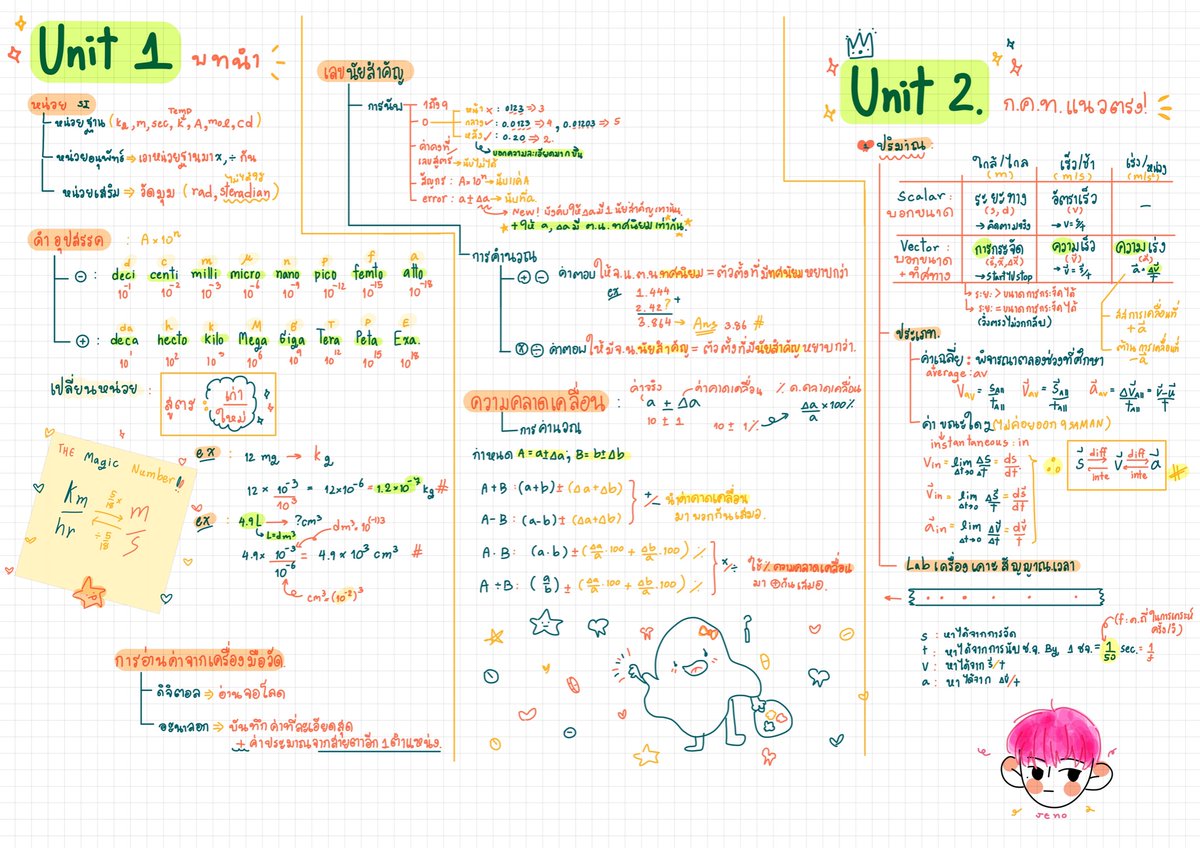 Unit 1 บทนำ
หน่วย SI
หน่วยฐาน (kg, m, sec, k, A, mol, cd)
Temp
หน่วยอนุพัทธ์ ⇒ เอาหน่วยฐานมา x, ÷ กัน
ไม่ใช่วิ
หน่วยเสริม ⇒ วัดมุม (rad, steradian)
คำอุปสรรค : A×10ⁿ
d c m μ n p f a
⊖ : deci centi milli micro nano pico femto atto
10⁻¹ 10⁻² 10⁻³ 10⁻⁶ 10⁻⁹ 10⁻¹² 10⁻¹⁵ 10⁻¹⁸
da h k M G T P E
⊕ : deca hecto kilo Mega Giga Tera Peta Exa.
10¹ 10² 10³ 10⁶ 10⁹ 10¹² 10¹⁵ 10¹⁸
เปลี่ยนหน่วย :
สูตร : เก่า
ใหม่
THE Magic Number!!
km/hr
5/18 x
÷ 5/18
m/s
ex : 12 mg → kg
12 × 10⁻³/10³ = 12×10⁻⁶ = 1.2×10⁻⁷ kg #
ex : 4.9L → ?cm³
L=dm³
dm³=10⁽⁻¹⁾³
4.9× 10⁻³/10⁻⁶ = 4.9 × 10³ cm³ #
cm³=(10⁻²)³
การอ่านค่าจากเครื่องมือวัด
ดิจิตอล ⇒ อ่านจอโลด
อะนาลอก ⇒ บันทึกค่าที่ละเอียดสุด
+ ค่าประมาณจากสายตาอีก 1 ตำแหน่ง.
เลขนัยสำคัญ
การนับ
1ถึง9
0
หน้า x : 0123 ⇒ 3
กลาง ✓ : 0.0123 ⇒ 4, 0.01203 ⇒ 5
หลัง ✓ : 0.20 ⇒ 2.
บอกความละเอียดมากขึ้น
ค่าคงที่/เลขสูตร → นับไม่ได้
สัญกร : A×10ⁿ → นับแค่ A
error : a ± Δa → นับที่ a.
New! บังคับให้ Δa มี 1 นัยสำคัญเท่านั้น.
+ ให้ a, Δa มี ต.น. ทศนิยมเท่ากัน.
การคำนวณ
⊕ ⊖ คำตอบให้ จ.น. ต.น. ทศนิยม = ตัวตั้งที่มีทศนิยมหยาบกว่า
ex 1.444
2.42? +
3.864 → Ans 3.86 #
⊗ ⊖ คำตอบให้มี จ.น. นัยสำคัญ = ตัวตั้งที่มีนัยสำคัญหยาบกว่า.
ความคลาดเคลื่อน :
ค่าจริง ค่าคาดเคลื่อน % ค.คลาดเคลื่อน
a ± Δa
Δa/a × 100%
10 ± 1 10 ± 1%
การคำนวณ
กำหนด A = a±Δa, B = b±Δb
A+B : (a+b) ± (Δa+Δb)
A-B : (a-b) ± (Δa+Δb)
+/- นำค่าคาดเคลื่อน
มาบวกกันเสมอ.
A·B : (a·b) ± (Δa/a·100 + Δb/a·100) %
A÷B : (a/b) ± (Δa/a·100 + Δb/a·100) %
x/÷ ใช้ % ความคลาดเคลื่อน
มา ⊕ กันเสมอ.
Unit 2. ก.ค.ท. แนวตรง!
1 ปริมาณ :
ใกล้/ไกล (m) เร็ว/ช้า (m/s) เร่ง/หน่วง (m/s²)
Scalar : บอกขนาด
ระยะทาง (s, d) → คิดตามจริง
อัตราเร็ว (v) → v=s/t
—
Vector : บอกขนาด + ทิศทาง
การกระจัด → start ไป stop
ความเร็ว (v⃗) → v⃗ = s⃗/t
ความเร่ง (a⃗) a⃗ = Δv⃗/t
ระยะ > ขนาดการกระจัดได้
ระยะ = ขนาดการกระจัดได้
(วิ่งตรงไม่วกกลับ)
การเคลื่อนที่ +a⃗
ต้านการเคลื่อนที่ -a⃗
ประเภท.
ค่าเฉลี่ย : พิจารณาตลอดช่วงที่ศึกษา
average : av
Vav = SAll/tAll V⃗av = S⃗All/tAll a⃗av = ΔV⃗All/tAll = v⃗-u⃗/t
ค่าขณะใดๆ (ไม่ค่อยออก ๆ SAMAN)
instantaneous : in
Vin = lim Δt→0 ΔS/Δt = ds/t
V⃗in = lim Δt→0 ΔS⃗/Δt = ds⃗/t
a⃗in = lim Δt→0 ΔV⃗/Δt = dv⃗/t
s⃗ diff inte v⃗ diff inte a⃗ #
Lab เครื่องเคาะสัญญาณเวลา
(f : ค.ถี่ ในการเคาะ ครั้ง/วิ)
s : หาได้จากการวัด
t : หาได้จากการนับ ช.จ. By 1 ช.จ. = 1/50 sec. = 1/f
v : หาได้จาก s/t
a : หาได้จาก Δv/t
jeno